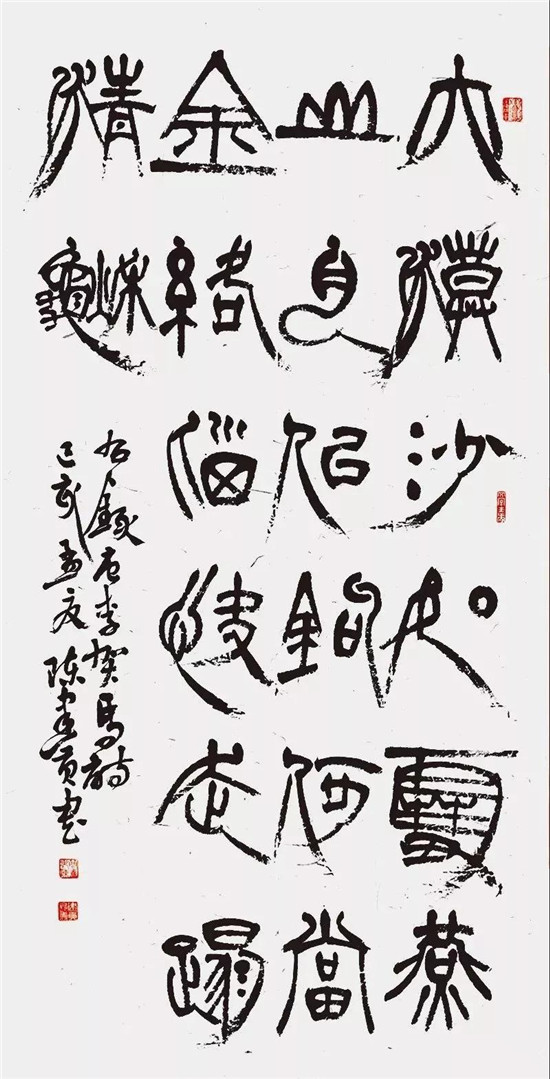 大漠沙如雪燕
山月似鉤何當
金絡腦快走蹋
清秋
右錄唐李賀馬詩
己亥孟夏陳建貢書